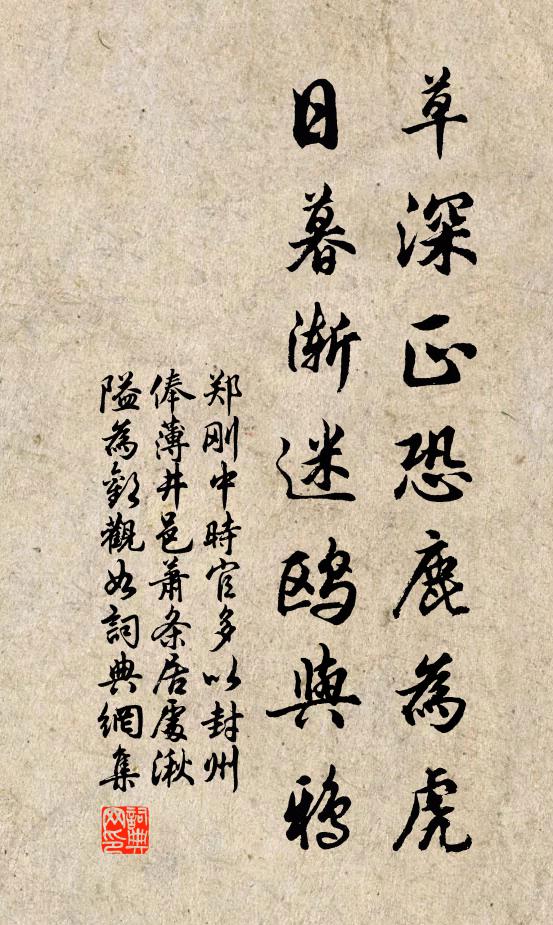 草深正恐鹿為虎
日暮漸迷鷗與鴉
郑刚中時官多以封州
俸薄井邑蕭条居處湫
隘為歎觀如詞典網集
詞典
网印